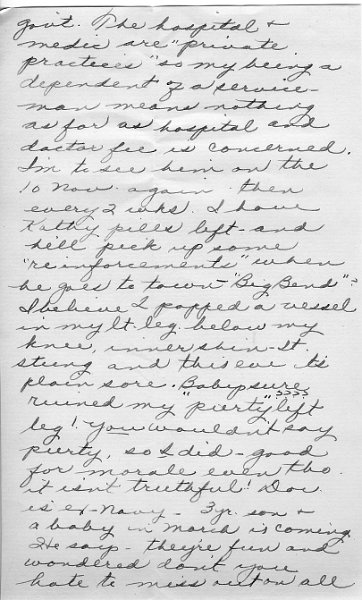 gov't. The hospital &
medic are "private
practices" so my being a
dependent of a service-
man means nothing
as far as hospital and
doctor fee is concerned.
I'm to see him on the
10 Nov. again then
every 2 wks. I have
Kathy pills left - and
he'll pick up some
"reinforcements" when
he goes to town - "Big Bend"?
I believe I popped a vessel
in my lt. leg below my
knee, inner shin - It
stung and this eve. it's
plain sore. Baby sure
ruined my "purty" left ????
leg! You wouldn't say
purty, so I did - good
for morale even tho
it isn't truthful! Doc
is ex-Navy - 3 yr. son &
a baby in March is coming
He says - they're fun and
wondered don't you
hate to miss out on all